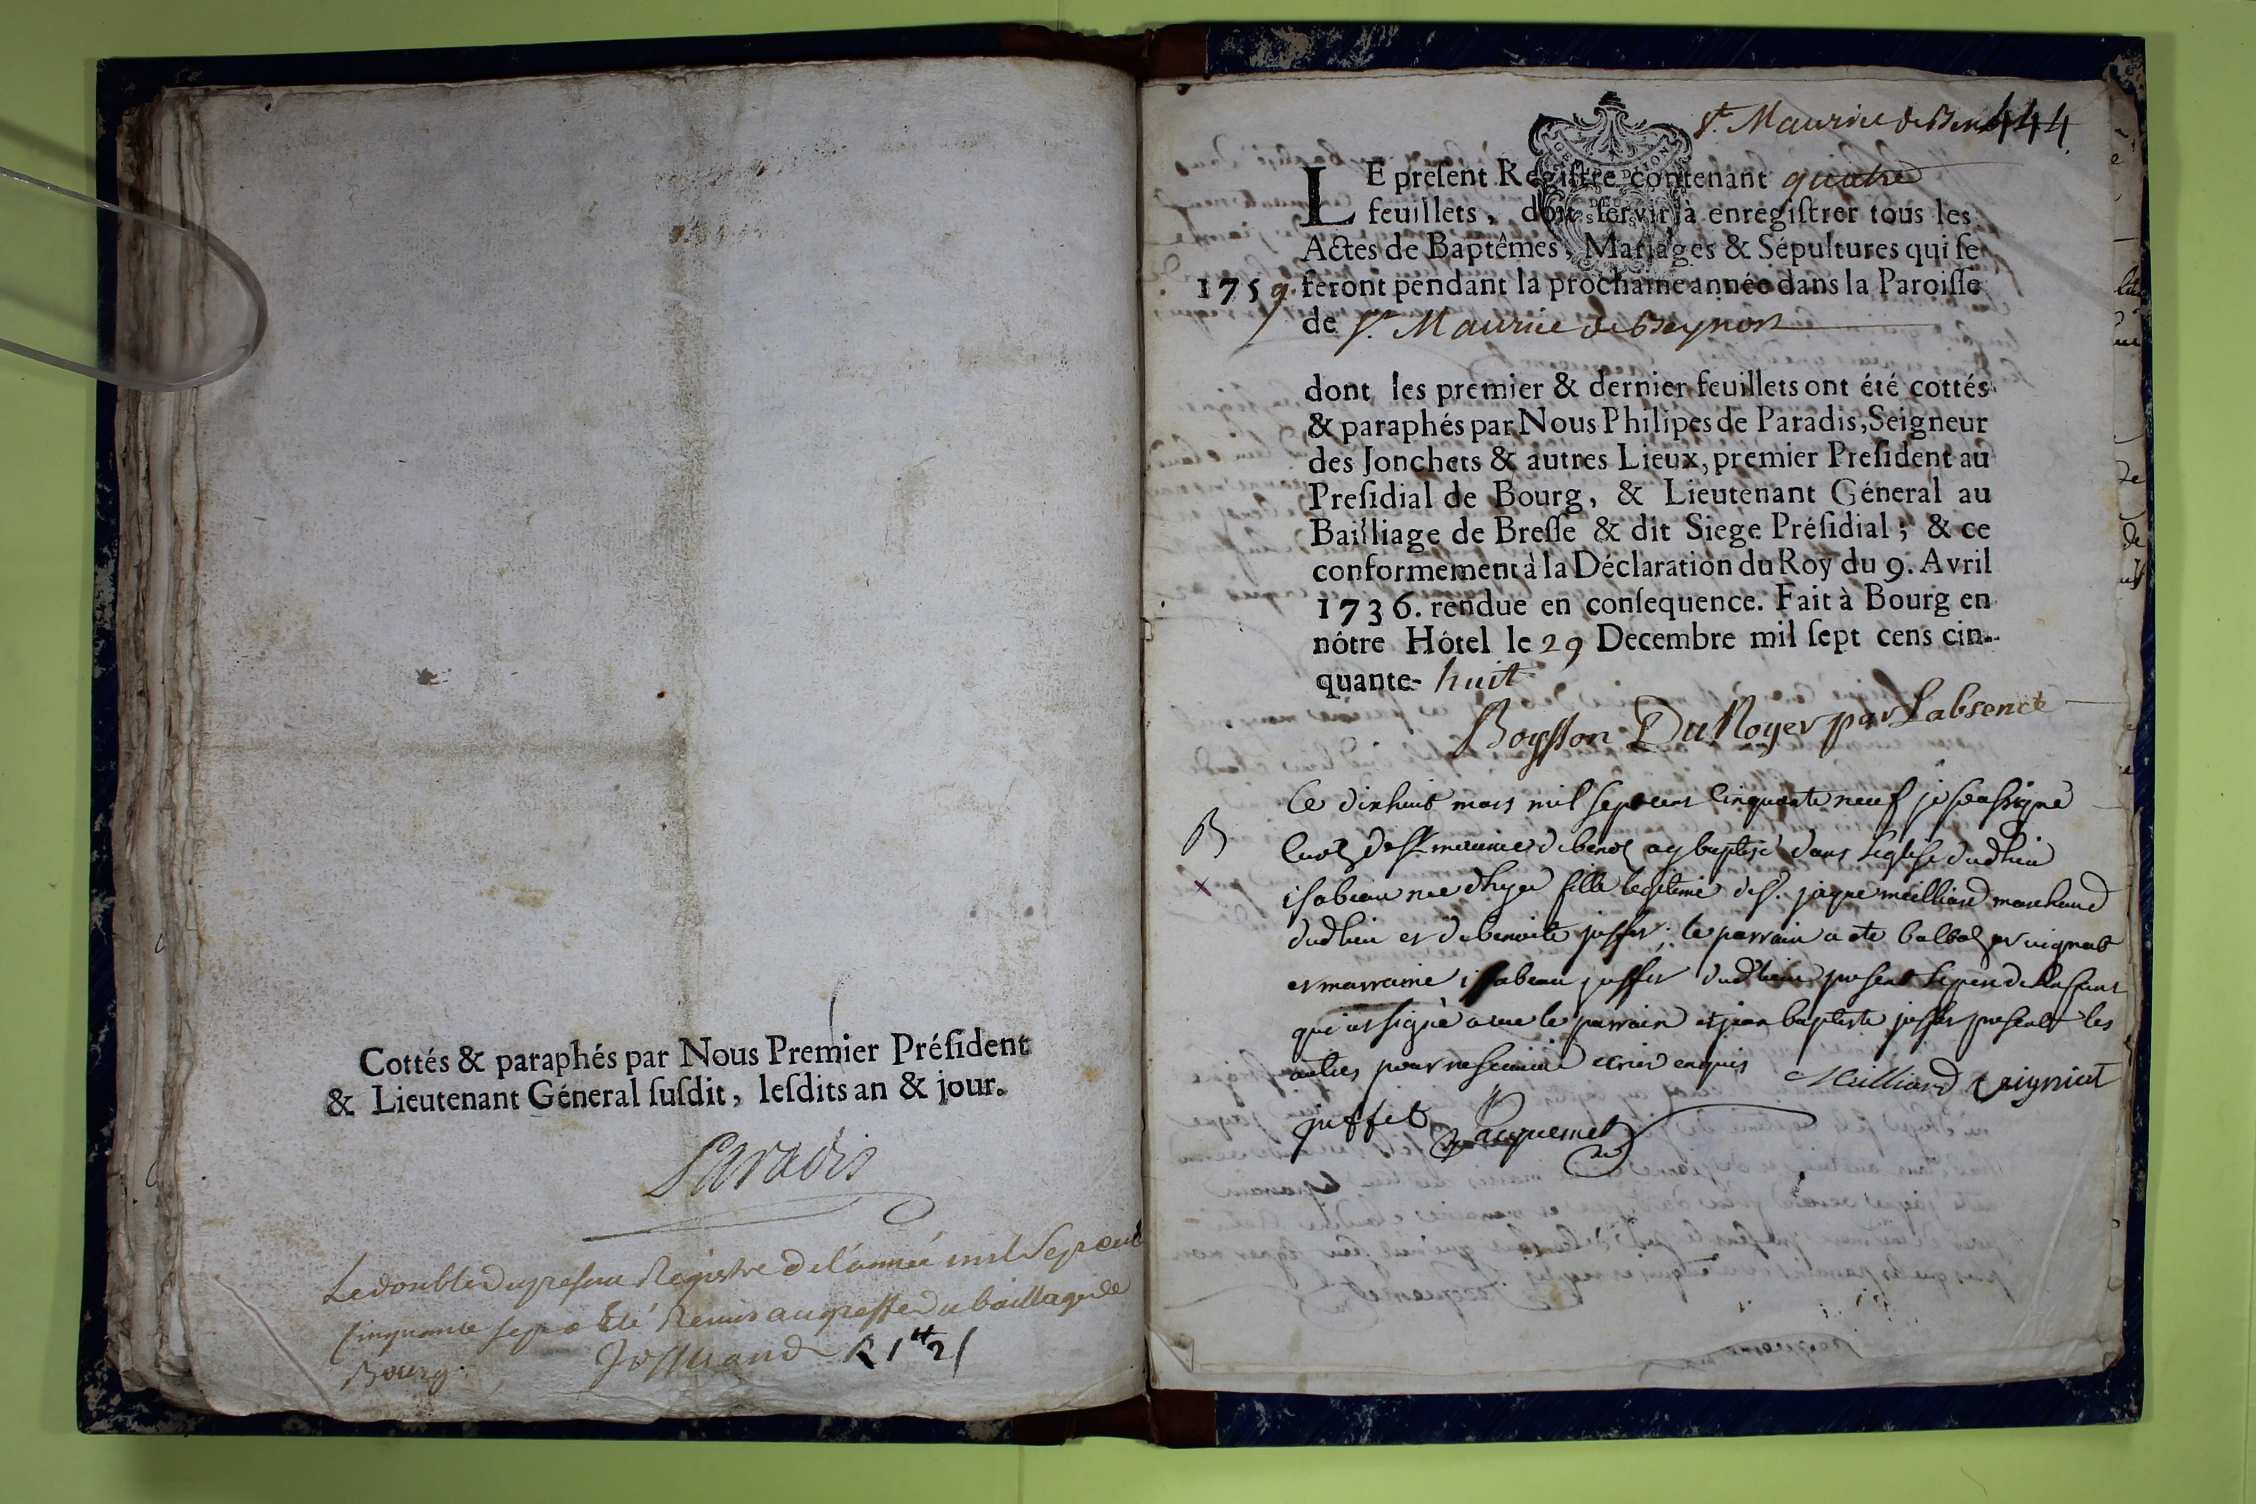 Cottés & paraphés par Nous Premier Préſident
& Lieutenant Géneral ſuſdit, leſdits an & jour.
Paradis
Le double du preſent Regiſtre de l'année mil Sept cent
Cinquante ſept a Eté Remis au greffe du bailliage de
Bourg.
St Maurice de 444
LE preſent Regiſtre contenant quatre
feuillets, doit ſervir à enregiſtrer tous les
Actes de Baptêmes, Mariages & Sépultures qui ſe
1759. feront pendant la prochaine année dans la Paroiſſe
de St Maurice de Beynost
dont les premier & dernier feuillets ont été cottés
& paraphés par Nous Philipes de Paradis, Seigneur
des Jonchets & autres Lieux, premier Preſident au
Preſidial de Bourg, & Lieutenant Géneral au
Bailliage de Breſſe & dit Siege Préſidial; & ce
conformement à la Déclaration du Roy du 9. Avril
1736. rendue en conſequence. Fait à Bourg en
nôtre Hôtel le 29 Decembre mil ſept cens cin-
quante- huit
Boysson Du Noyer par Labsence
B Ce dixhuit mars mil sept cent Cinquante neuf je soussigné
Curé de St maurice de ay baptisé dans l'eglise dudt lieu
isabeau née d'hyer fille legitime de Sr. jaque meilliard marchand
dudt lieu et de benoite juffet; le parrain a eté
et marraine isabeau juffet dudt lieu present le pere de l'enfant
qui at signé avec le parrain et jean baptiste juffet present les
autres pour ne scavoir enquis Meilliard
juffet Jacquemet